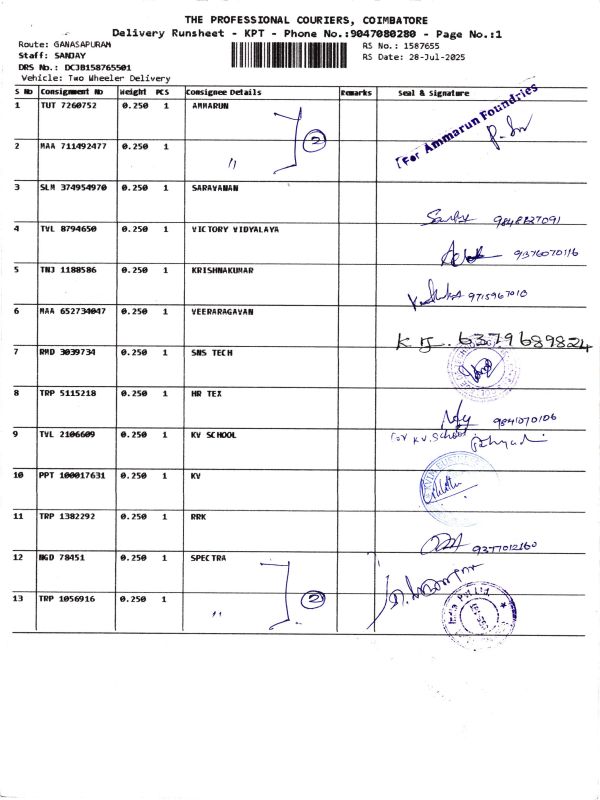 THE PROFESSIONAL COURIERS, COIMBATORE
Delivery Runsheet - KPT - Phone No.:9047080280 - Page No.:1
Route: GANASAPURAM RS No.: 1587655
Staff: SANJAY RS Date: 28-Jul-2025
DRS No.: DCJB158765501
Vehicle: Two Wheeler Delivery
S No Consignment No Weight PCS Consignee Details Remarks Seal & Signature
1 TUT 7260752 0.250 1 AMMARUN [For Ammarun Foundries
2 MAA 711492477 0.250 1 " 2
3 SLM 374954970 0.250 1 SARAVANAN 9848827091
4 TVL 8794650 0.250 1 VICTORY VIDYALAYA 9376070116
5 TNJ 1188586 0.250 1 KRISHNAKUMAR 9715967010
6 MAA 652734047 0.250 1 VEERARAGAVAN 6379689824
7 RMD 3039734 0.250 1 SNS TECH
8 TRP 5115218 0.250 1 HR TEX 9841070106
9 TVL 2106609 0.250 1 KV SCHOOL For KV. School
10 PPT 100017631 0.250 1 KV
11 TRP 1382292 0.250 1 RRK 9377012160
12 NGD 78451 0.250 1 SPECTRA
13 TRP 1056916 0.250 1 " 2 India Pvt Ltd